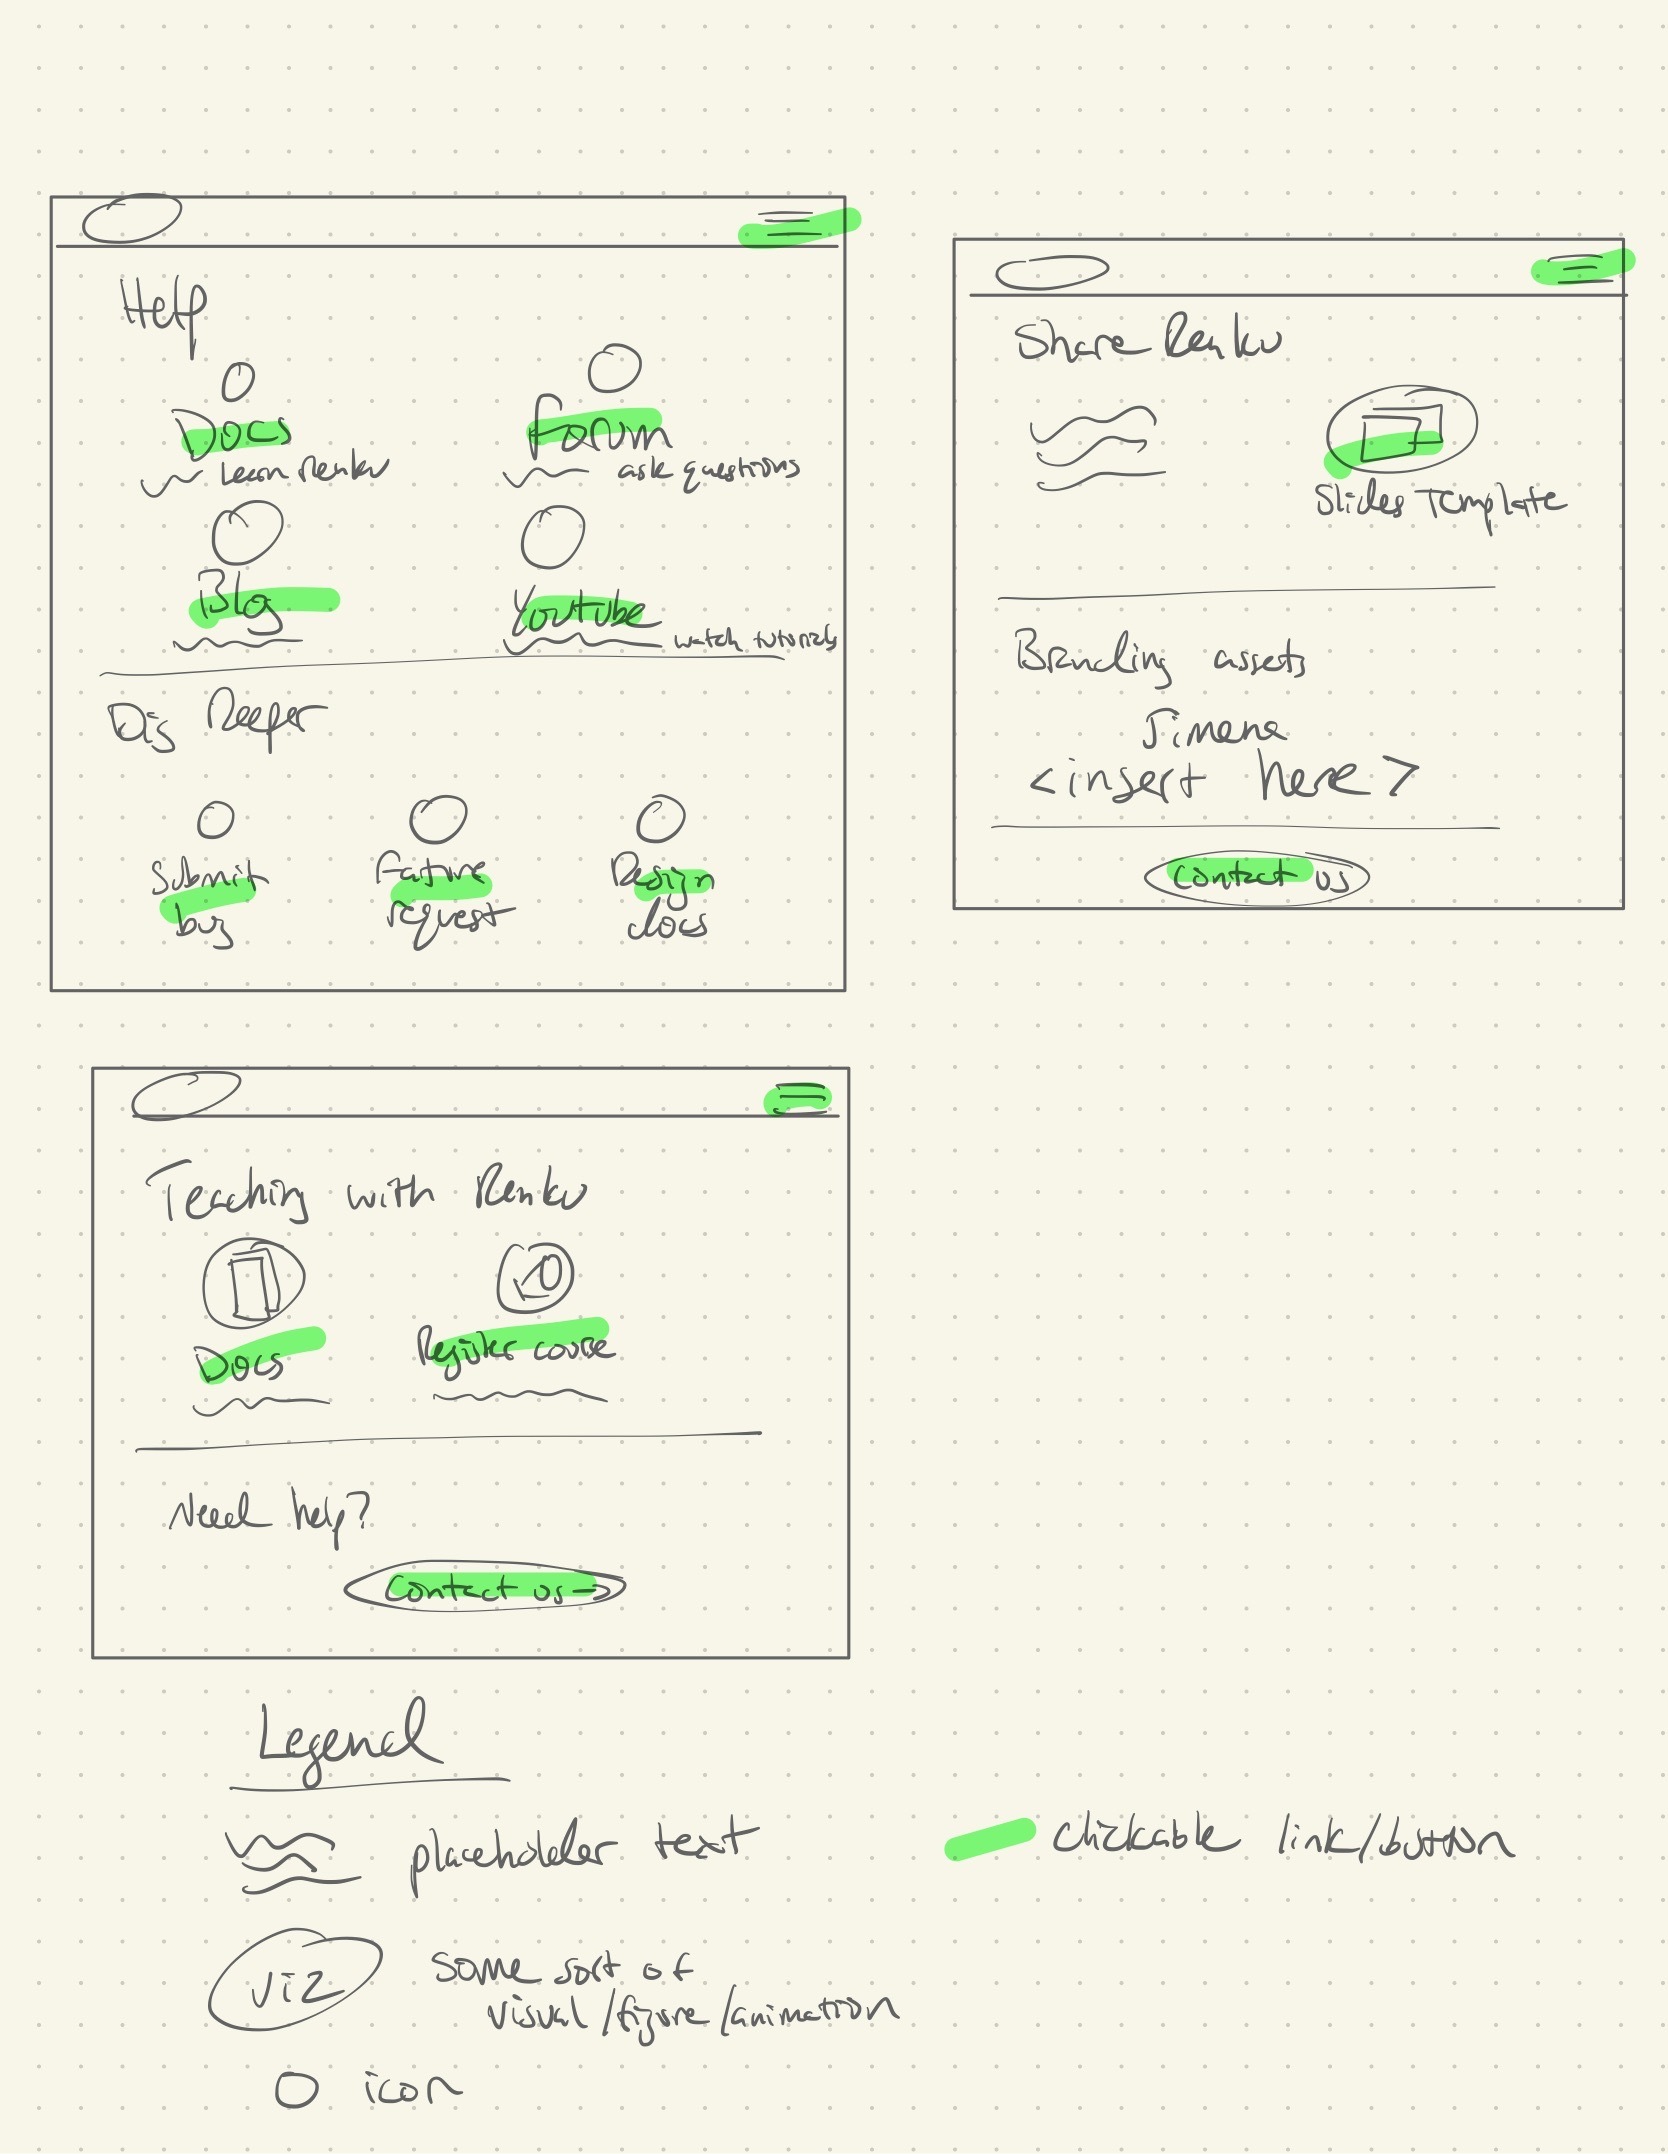 Help
Docs
Learn Renku
Forum
ask questions
Blog
Youtube
watch tutorials
Dig Deeper
Submit
bug
Feature
request
Design
docs
Share Renku
Slides Template
Branding assets
Jimena
<insert here>
Contact us
Teaching with Renku
Docs
Register course
Need help?
Contact us →
Legend
placeholder text
clickable link/button
viz
some sort of
visual/figure/animation
icon